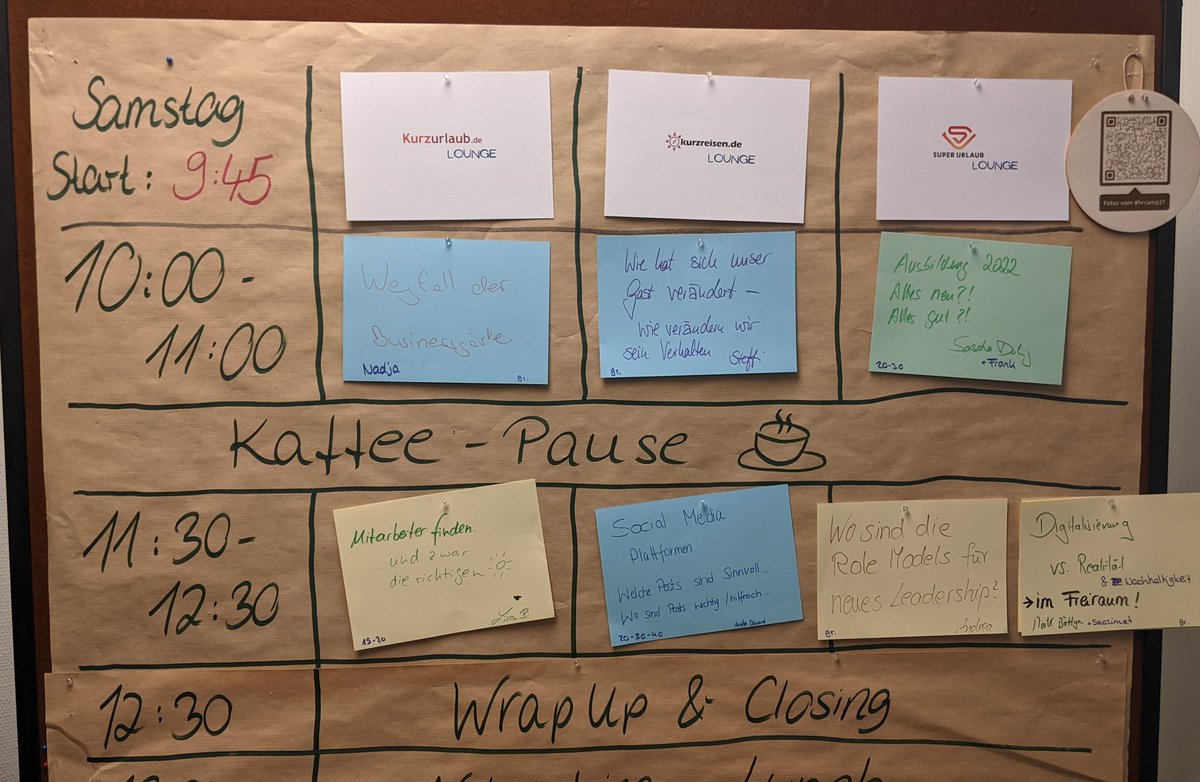 Samstag
Start: 9:45
Kurzurlaub.de
LOUNGE
kurzreisen.de
LOUNGE
SUPER URLAUB
LOUNGE
Fotos vom #hrcamp21
10:00 -
11:00
Wegfall der
Businessgäste
Nadja
Br.
Wie hat sich unser
Gast verändert -
Wie verändern wir
sein Verhalten
Steffi
Br.
Ausbildung 2022
Alles neu?!
Alles gut?!
Sascha
+ Frank
20-30
Kaffee - Pause
11:30 -
12:30
Mitarbeiter finden.
...und zwar
die richtigen
Lisa B.
15-20
Social Media
Plattformen
Welche Posts sind Sinnvoll...
Wo sind Posts wichtig / hilfreich...
20-30-40
Wo sind die
Role Models für
neues Leadership?
Andrea
Br.
Digitalisierung
vs. Realität
& Nachhaltigkeit
→ im Freiraum!
Br.
12:30
Wrap Up & Closing